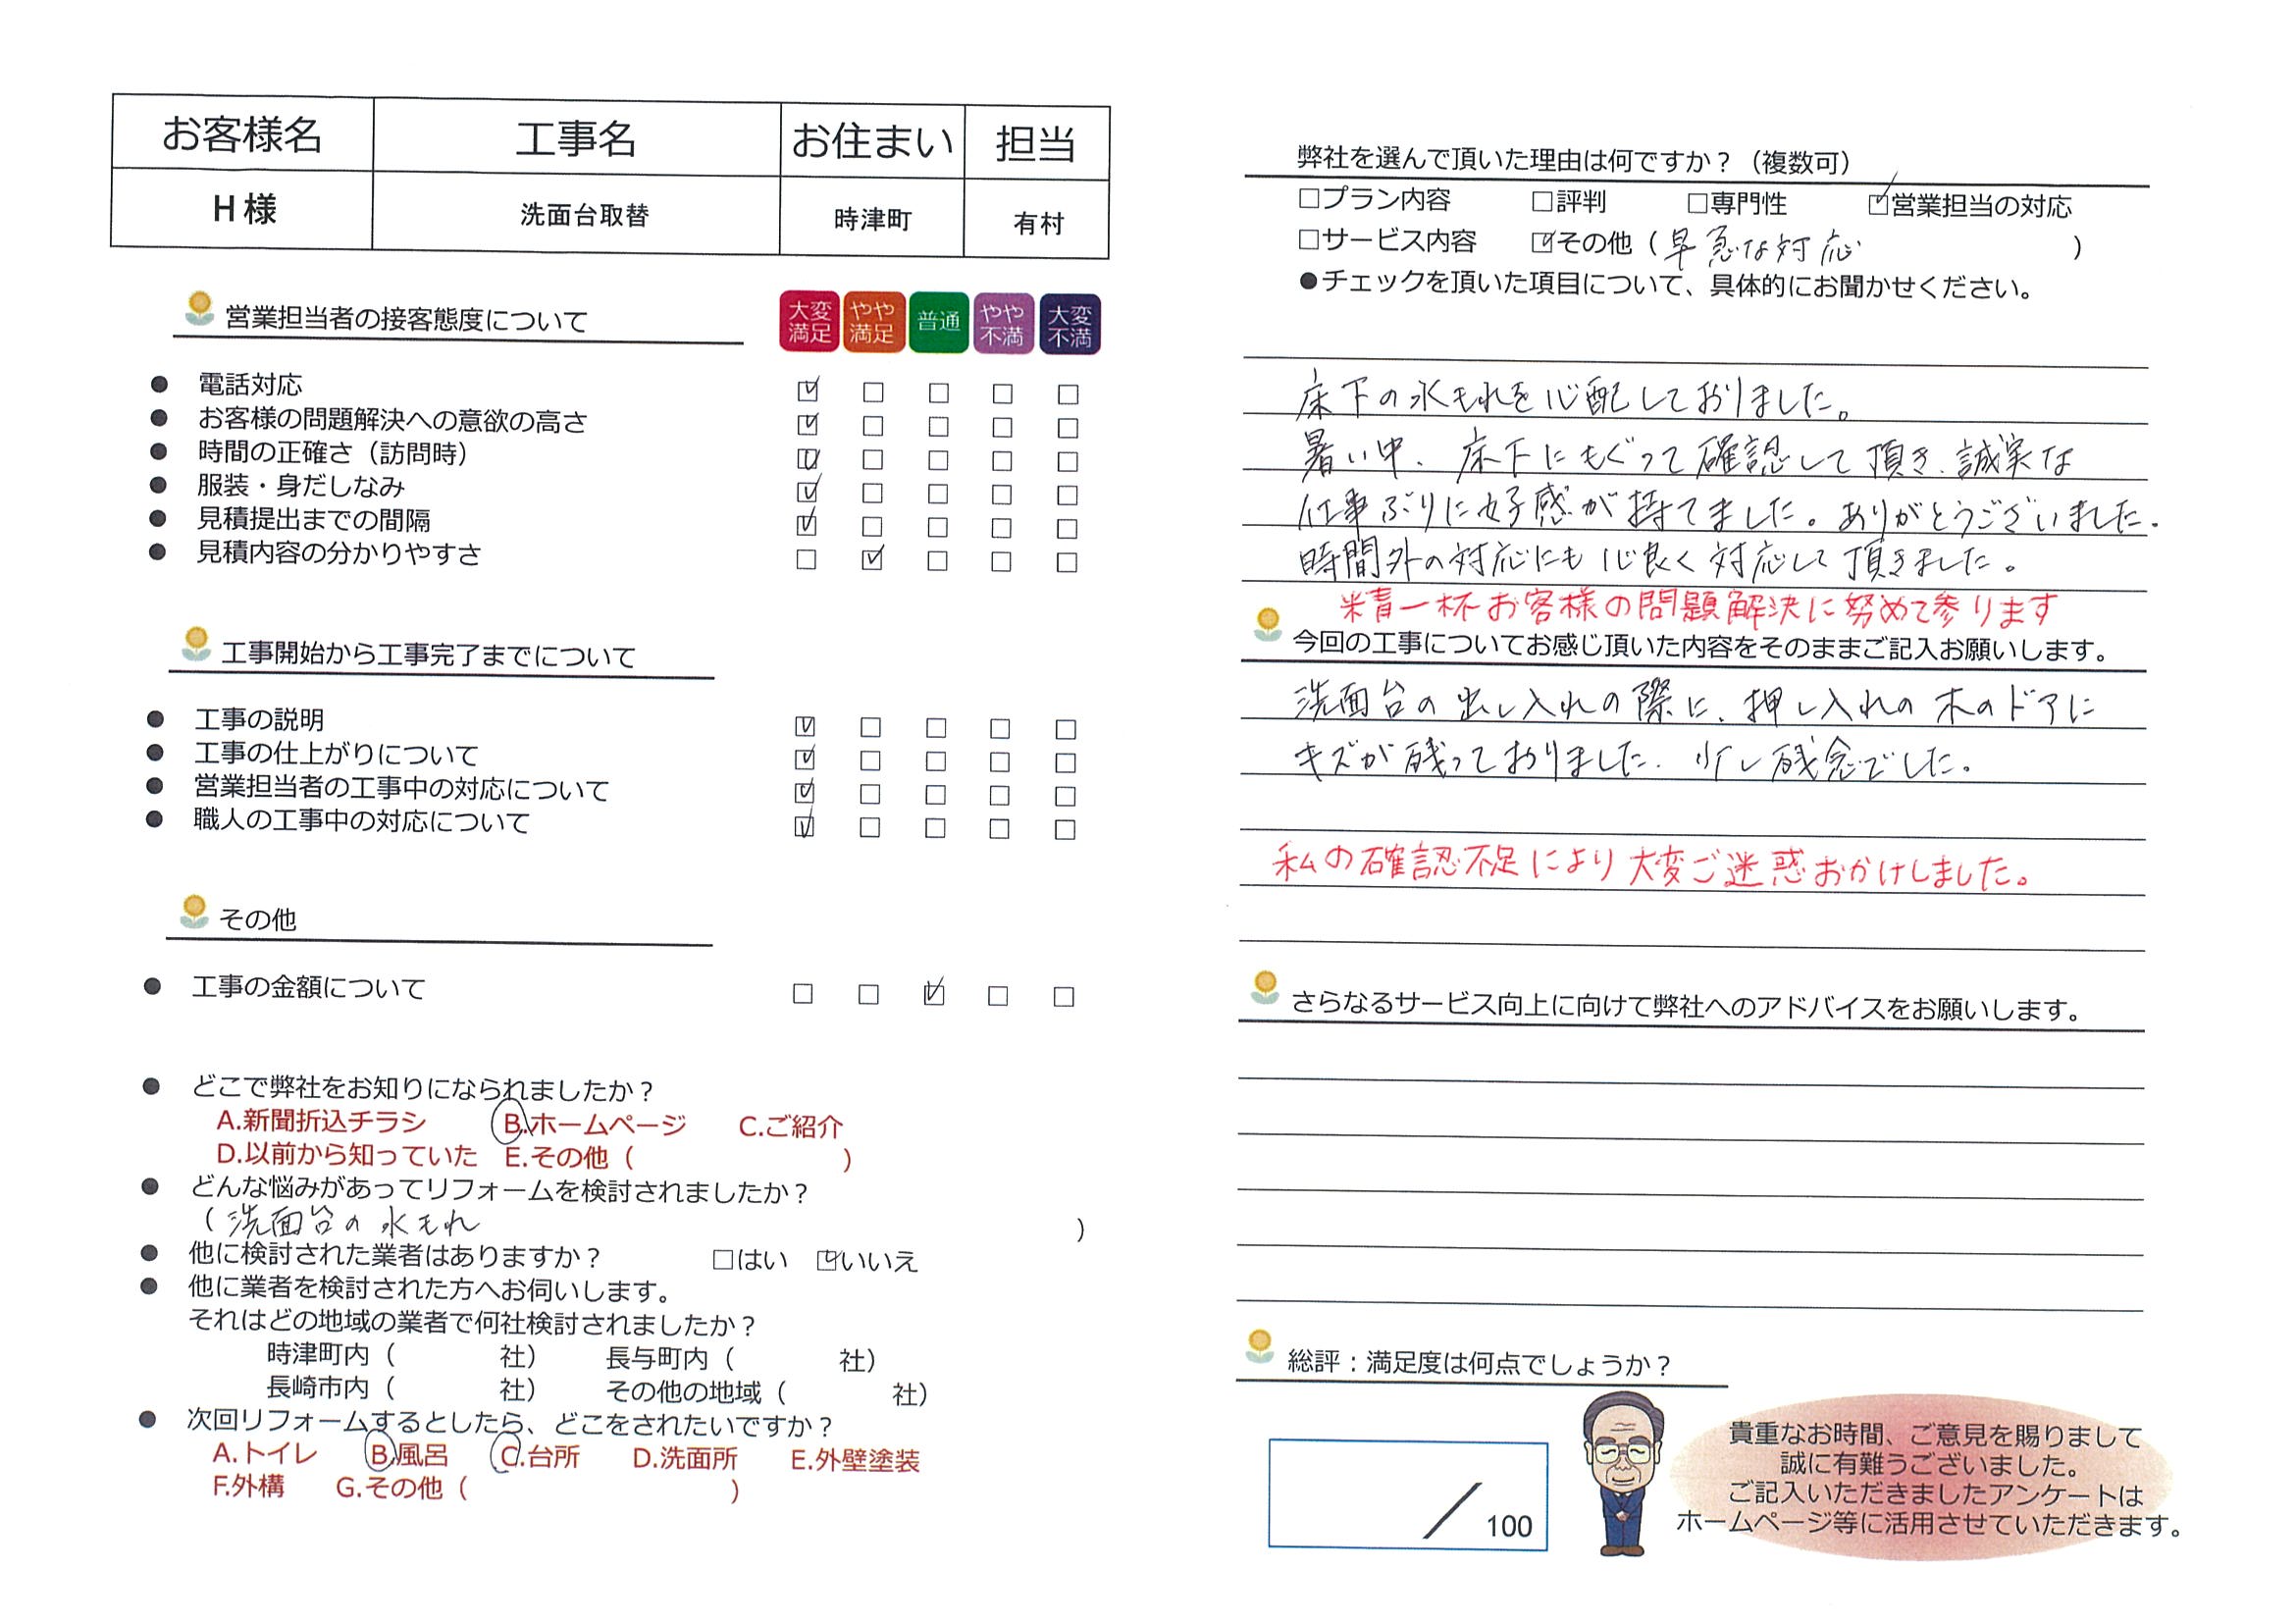 お客様名 工事名 お住まい 担当
H様 洗面台取替 時津町 有村
営業担当者の接客態度について
大変満足 やや満足 普通 やや不満 大変不満
● 電話対応 ☑ □ □ □ □
● お客様の問題解決への意欲の高さ ☑ □ □ □ □
● 時間の正確さ（訪問時） ☑ □ □ □ □
● 服装・身だしなみ ☑ □ □ □ □
● 見積提出までの間隔 ☑ □ □ □ □
● 見積内容の分かりやすさ □ ☑ □ □ □
工事開始から工事完了までについて
● 工事の説明 ☑ □ □ □ □
● 工事の仕上がりについて ☑ □ □ □ □
● 営業担当者の工事中の対応について ☑ □ □ □ □
● 職人の工事中の対応について ☑ □ □ □ □
その他
● 工事の金額について □ □ ☑ □ □
● どこで弊社をお知りになられましたか？
A.新聞折込チラシ B.ホームページ C.ご紹介
D.以前から知っていた E.その他（ ）
● どんな悩みがあってリフォームを検討されましたか？
（洗面台の水もれ ）
● 他に検討された業者はありますか？ □はい ☑いいえ
● 他に業者を検討された方へお伺いします。
それはどの地域の業者で何社検討されましたか？
時津町内（ 社） 長与町内（ 社）
長崎市内（ 社） その他の地域（ 社）
● 次回リフォームするとしたら、どこをされたいですか？
A.トイレ B.風呂 C.台所 D.洗面所 E.外壁塗装
F.外構 G.その他（ ）
弊社を選んで頂いた理由は何ですか？（複数可）
□プラン内容 □評判 □専門性 ☑営業担当の対応
□サービス内容 ☑その他（早急な対応 ）
●チェックを頂いた項目について、具体的にお聞かせください。
床下の水もれを心配しておりました。
暑い中、床下にもぐって確認して頂き、誠実な
仕事ぶりに好感が持てました。ありがとうございました。
時間外の対応にも心良く対応して頂きました。
精一杯お客様の問題解決に努めて参ります
今回の工事についてお感じ頂いた内容をそのままご記入お願いします。
洗面台の出し入れの際に、押し入れの木のドアに
キズが残っておりました。少し残念でした。
私の確認不足により大変ご迷惑おかけしました。
さらなるサービス向上に向けて弊社へのアドバイスをお願いします。
総評：満足度は何点でしょうか？
／100
貴重なお時間、ご意見を賜りまして
誠に有難うございました。
ご記入いただきましたアンケートは
ホームページ等に活用させていただきます。